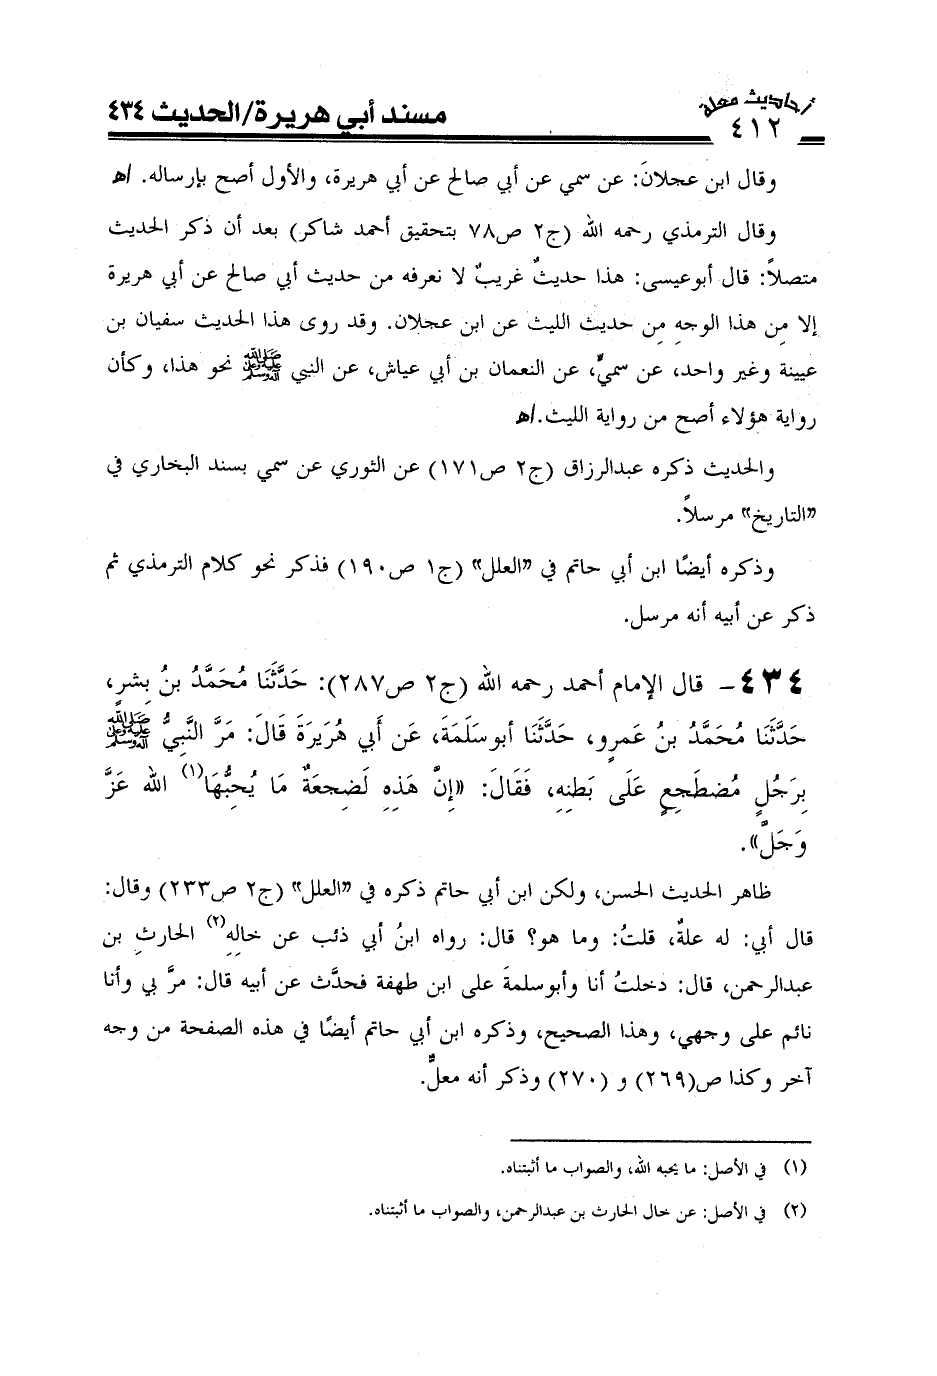 أحاديث معلة
٤١٢
مسند أبي هريرة/الحديث ٤٣٤
وقال ابن عجلانَ: عن سمي عن أبي صالح عن أبي هريرة، والأول أصح بإرساله. اهـ
وقال الترمذي رحمه الله (ج٢ ص٧٨ بتحقيق أحمد شاكر) بعد أن ذكر الحديث
متصلاً: قال أبوعيسى: هذا حديثٌ غريبٌ لا نعرفه من حديث أبي صالح عن أبي هريرة
إلا مِن هذا الوجهِ مِن حديث الليث عن ابن عجلان. وقد روى هذا الحديث سفيان بن
عيينة وغير واحد، عن سميٍّ، عن النعمان بن أبي عياش، عن النبي ﷺ نحو هذا، وكأن
رواية هؤلاء أصح من رواية الليث.اهـ
والحديث ذكره عبدالرزاق (ج٢ ص١٧١) عن الثوري عن سمي بسند البخاري في
«التاريخ» مرسلاً.
وذكره أيضًا ابن أبي حاتم في «العلل» (ج١ ص١٩٠) فذكر نحو كلام الترمذي ثم
ذكر عن أبيه أنه مرسل.
٤٣٤- قال الإمام أحمد رحمه الله (ج٢ ص٢٨٧): حَدَّثَنَا مُحَمَّدُ بنُ بِشرٍ،
حَدَّثَنَا مُحَمَّدُ بنُ عَمرٍو، حَدَّثَنَا أبوسَلَمَةَ، عَن أَبِي هُرَيرَةَ قَالَ: مَرَّ النَّبِيُّ ﷺ
بِرَجُلٍ مُضطَجِعٍ عَلَى بَطنِهِ، فَقَالَ: «إِنَّ هَذِهِ لَضِجعَةٌ مَا يُحِبُّهَا(١) الله عَزَّ
وَجَلَّ».
ظاهر الحديث الحسن، ولكن ابن أبي حاتم ذكره في «العلل» (ج٢ ص٢٣٣) وقال:
قال أبي: له علةٌ، قلتُ: وما هو؟ قال: رواه ابنُ أبي ذئب عن خالِهِ(٢) الحارثِ بن
عبدالرحمن، قال: دخلتُ أنا وأبوسلمةَ على ابن طهفة فحدَّث عن أبيه قال: مرَّ بي وأنا
نائم على وجهي، وهذا الصحيح، وذكره ابن أبي حاتم أيضًا في هذه الصفحة من وجه
آخر وكذا ص(٢٦٩) و (٢٧٠) وذكر أنه معلٌّ.
(١) في الأصل: ما يحبه الله، والصواب ما أثبتناه.
(٢) في الأصل: عن خال الحارث بن عبدالرحمن، والصواب ما أثبتناه.